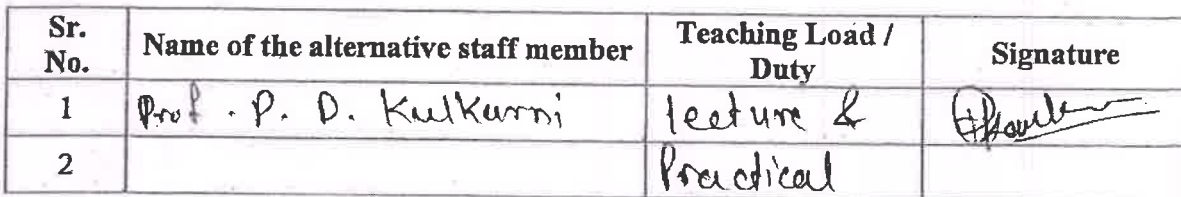 Sr. No. Name of the alternative staff member Teaching Load / Duty Signature
1 Prof. P. D. Kulkarni lecture &
2 Practical